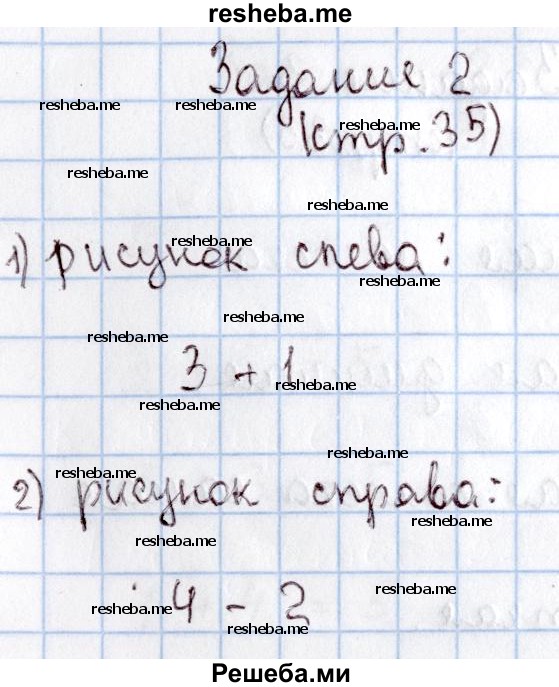 resheba.me
Задание 2
resheba.me resheba.me
resheba.me
(стр. 35)
resheba.me
resheba.me
resheba.me
1) рисунок слева:
resheba.me
resheba.me
resheba.me
3 + 1
resheba.me
resheba.me
resheba.me
resheba.me
2) рисунок справа:
resheba.me
resheba.me
resheba.me
4 - 2
resheba.me
resheba.me
Решеба.ми